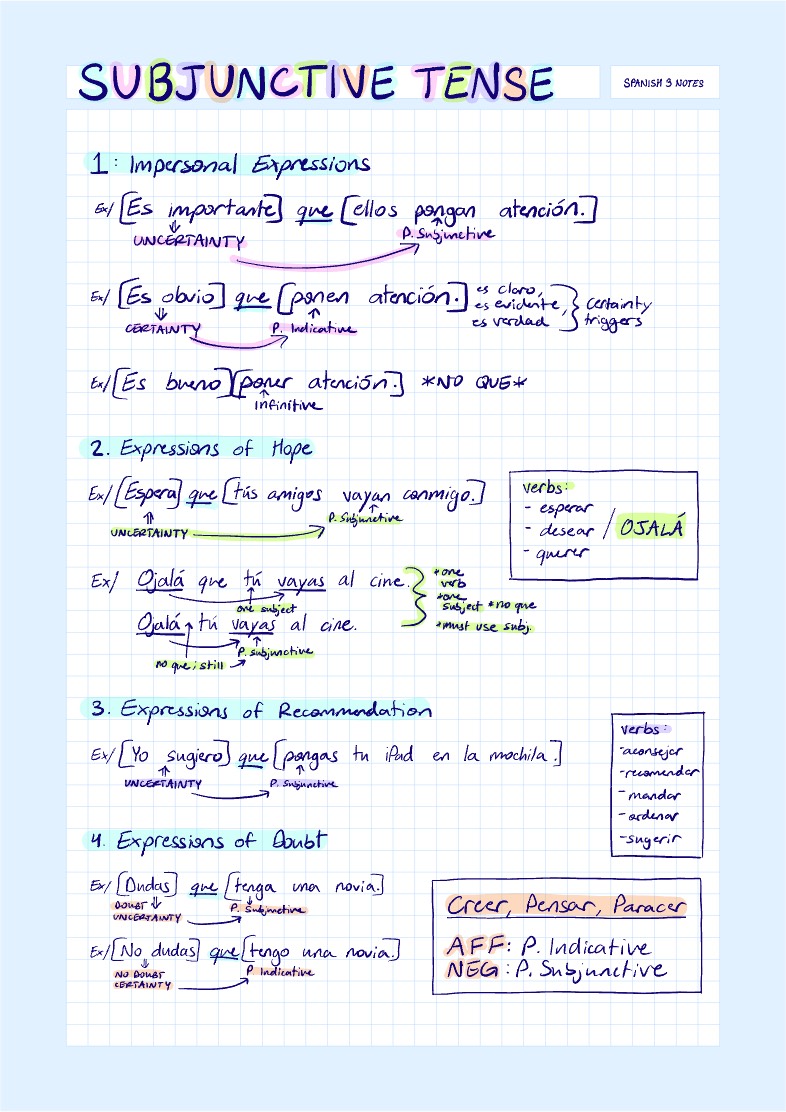 SUBJUNCTIVE TENSE
SPANISH 3 NOTES
1: Impersonal Expressions
Ex/ [Es importante] que [ellos pongan atención.]
UNCERTAINTY
P. Subjunctive
Ex/ [Es obvio] que [ponen atención.]
es claro,
es evidente,
es verdad
certainty
triggers
CERTAINTY
P. Indicative
Ex/ [Es bueno][poner atención.] *NO QUE*
infinitive
2. Expressions of Hope
Ex/ [Espera] que [tús amigos vayan conmigo.]
UNCERTAINTY
P. Subjunctive
verbs:
- esperar
- desear / OJALÁ
- querer
Ex/ Ojalá que tú vayas al cine.
one subject
Ojalá tú vayas al cine.
P. subjunctive
no que, still
*one
verb
*one
subject *no que
*must use subj.
3. Expressions of Recommendation
Ex/ [Yo sugiero] que [pongas tu iPad en la mochila.]
UNCERTAINTY
P. Subjunctive
verbs:
-aconsejar
-recomendar
- mandar
- ordenar
-sugerir
4. Expressions of Doubt
Ex/ [Dudas] que [tenga una novia.]
DOUBT
UNCERTAINTY
P. Subjunctive
Ex/ [No dudas] que [tengo una novia.]
NO DOUBT
CERTAINTY
P Indicative
Creer, Pensar, Paracer
AFF: P. Indicative
NEG: P. Subjunctive